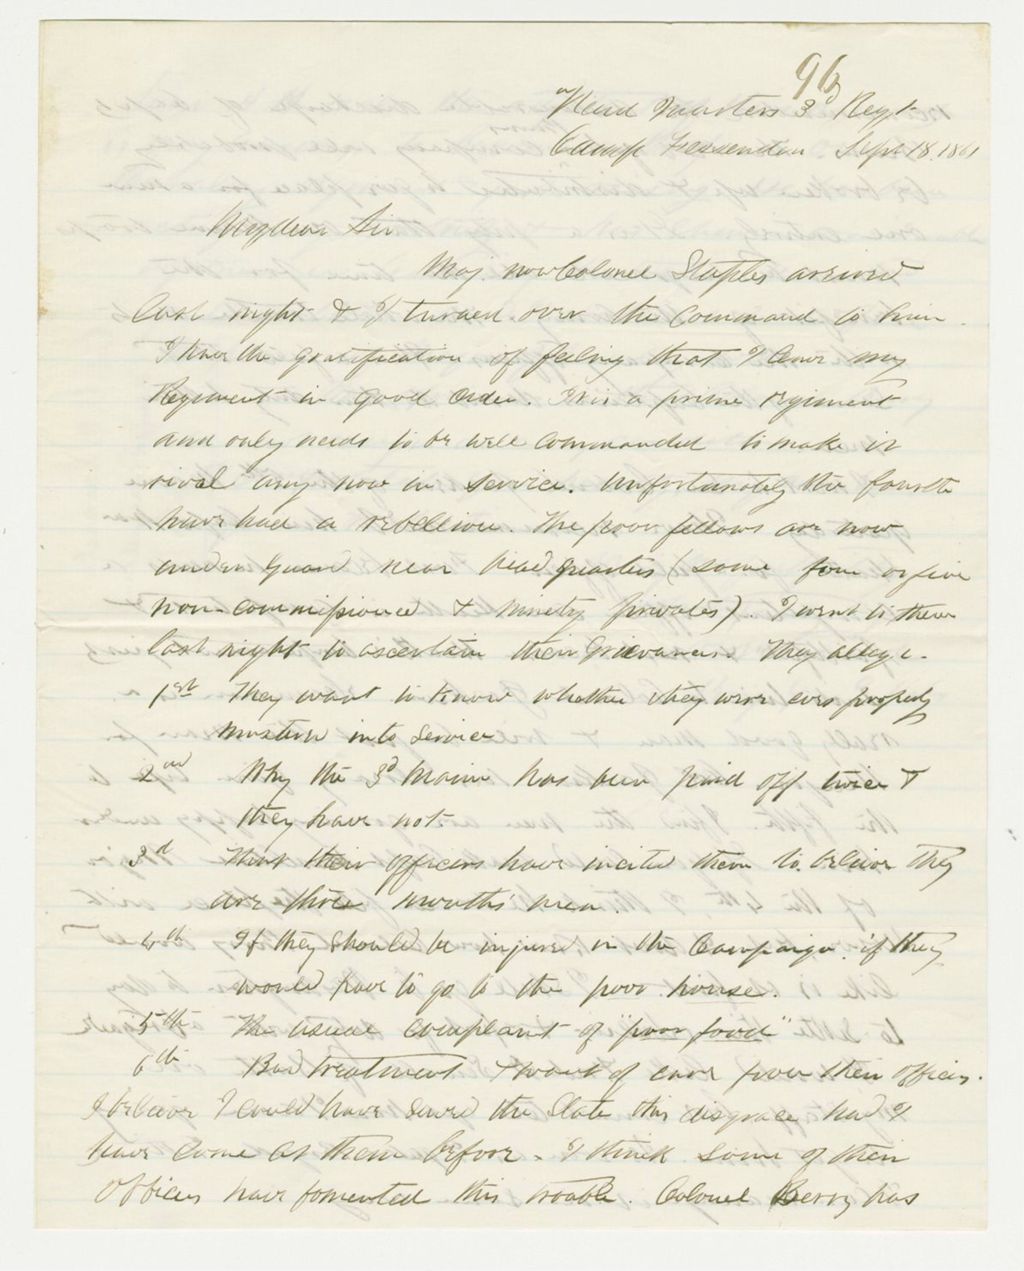 96
Head Quarters 3d Regt
Camp Fessenden. Sept 18. 1861
My dear Sir
Maj. now Colonel Staples arrived
last night & I turned over the Command to him.
I have the gratification of feeling that I leave my
Regiment in good order. It is a prime regiment
and only needs to be well commanded to make it
rival any now in service. Unfortunately the fourth
have had a rebellion. The poor fellows are now
under Guard near head quarters (some four or five
non-commissioned & ninety privates). I went to them
last night to ascertain their Grievances. They allege.
1st They want to know whether they were ever properly
mustered into service
2nd Why the 3d Maine has been paid off twice &
they have not
3d That their officers have incited them to believe they
are three months men.
4th If they should be injured in the Campaign if they
would have to go to the poor house.
5th The usual complaint of "poor food"
6th Bad treatment & want of care from their officers.
I believe I could have saved the State this disgrace had I
have come at them before. I think some of their
Officers have fomented this trouble. Colonel Berry has